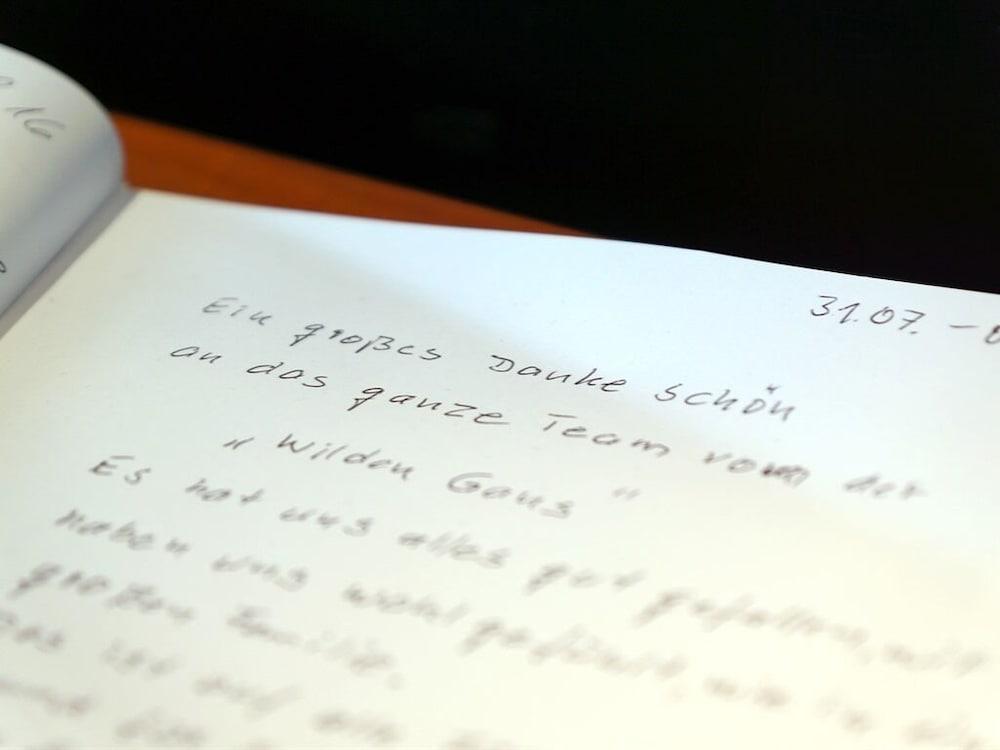 16
31.07. –
Ein großes Danke schön
an das ganze Team vom der
„ Wilden Gans "
Es hat uns alles gut gefallen, wir
haben uns wohl gefühlt, wie in
großen Familie.
Das ist auf